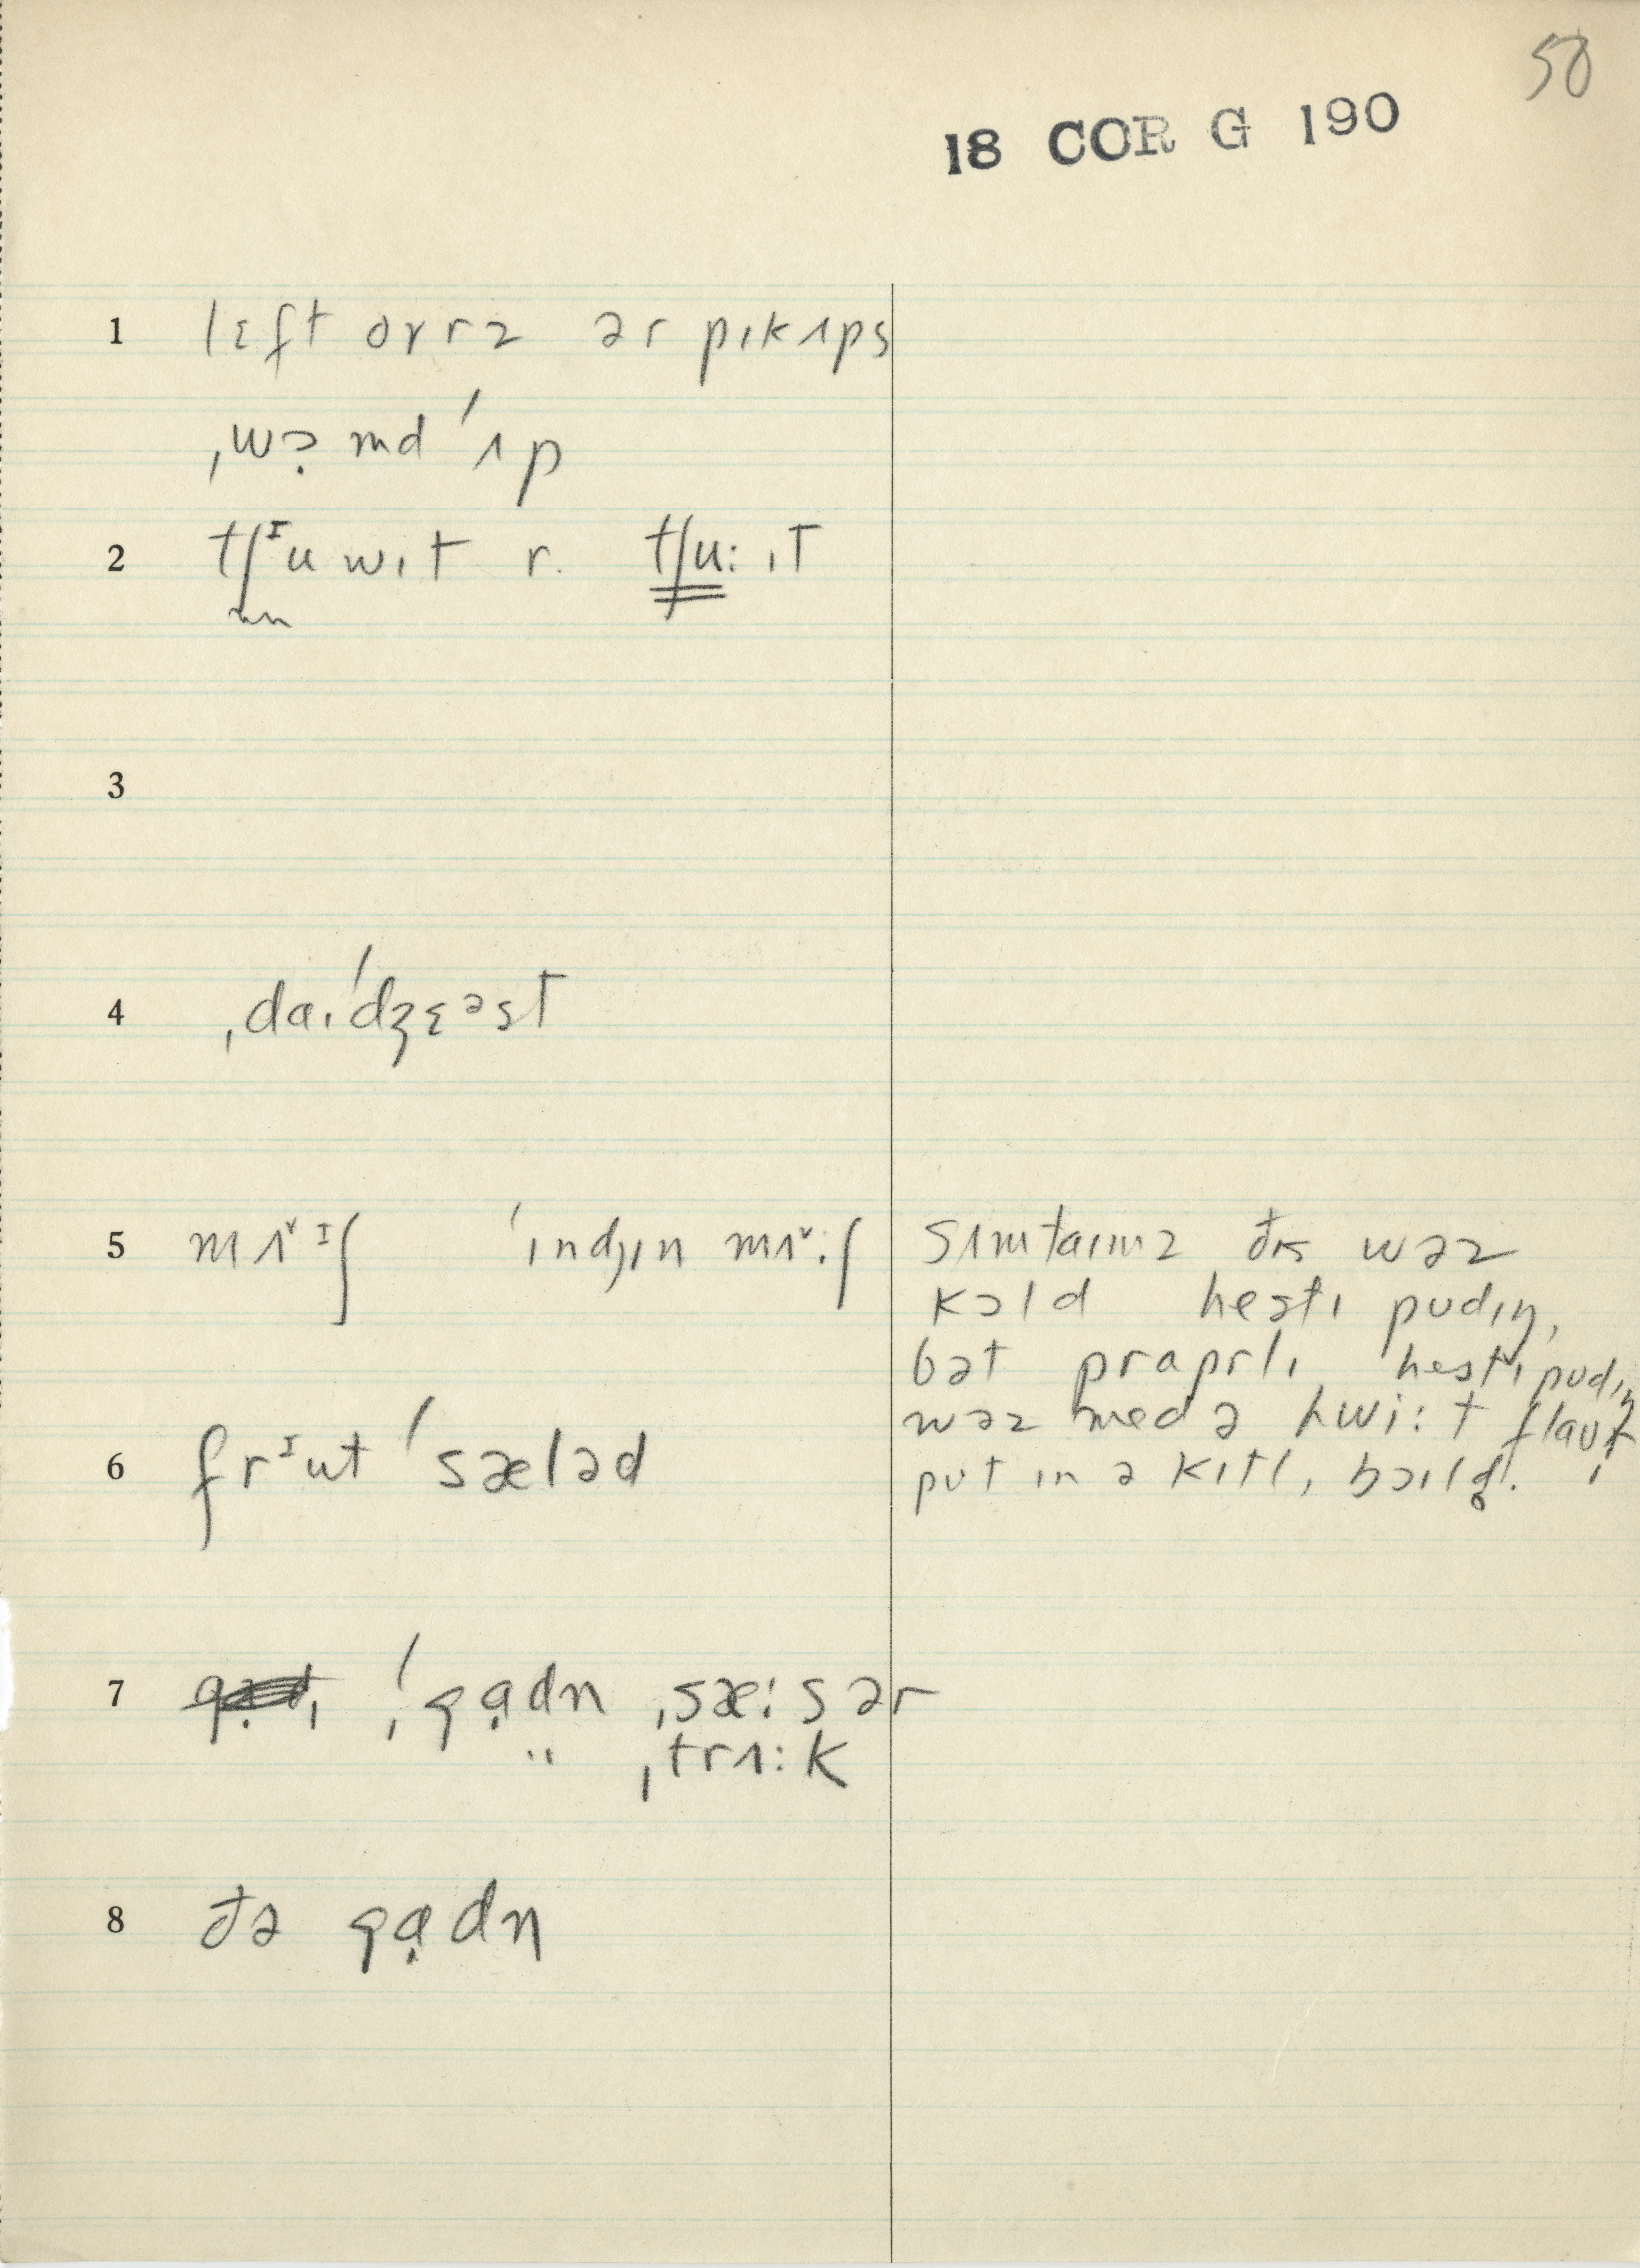 50
18 COR G 190
1 lɛft ovrz ər pɪkʌps
ˌwɔ̣md ˈʌp
2 tʃᶦuwɪt r. tʃu:ɪt
3
4 ˌdaɪˈdʒɛᵊst
5 mʌˇᶦʃ ˈɪndjɪn mʌˇ:ʃ
sʌmtaɪmz ðɪs wəz
kɔld hestɪ pudɪŋ,
bət praprlɪ hestɪ pudɪŋ
wəz med ə hwi:t flaur
put in ə kɪtl, bɔɪld̥.
6 frᶦut ˈsæləd
7 ˈgɑ̣dn ˌsæ:sər
" ˌtrʌ:k
8 ðə gɑ̣dn